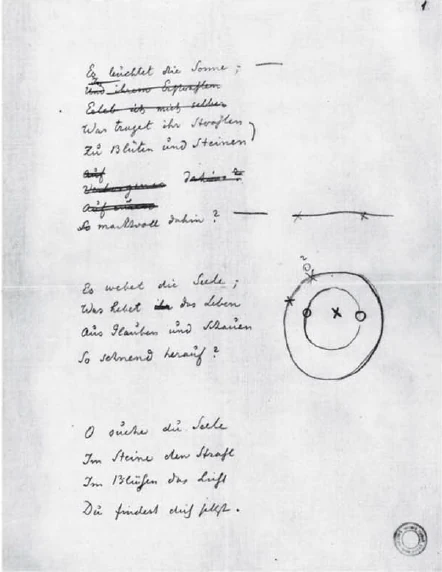 1.
Es leuchtet die Sonne;
Erleb ich mich selber
Was traget ihr Strahlen
Zu Blüten und Steinen
Auf
dahin?
So machtvoll dahin?
Es webet die Seele;
Was hebet das Leben
Aus Glauben und Schauen
So sehnend herauf?
O suche du Seele
Im Steine den Strahl
Im Blühen das Licht
Du findest dich selbst.